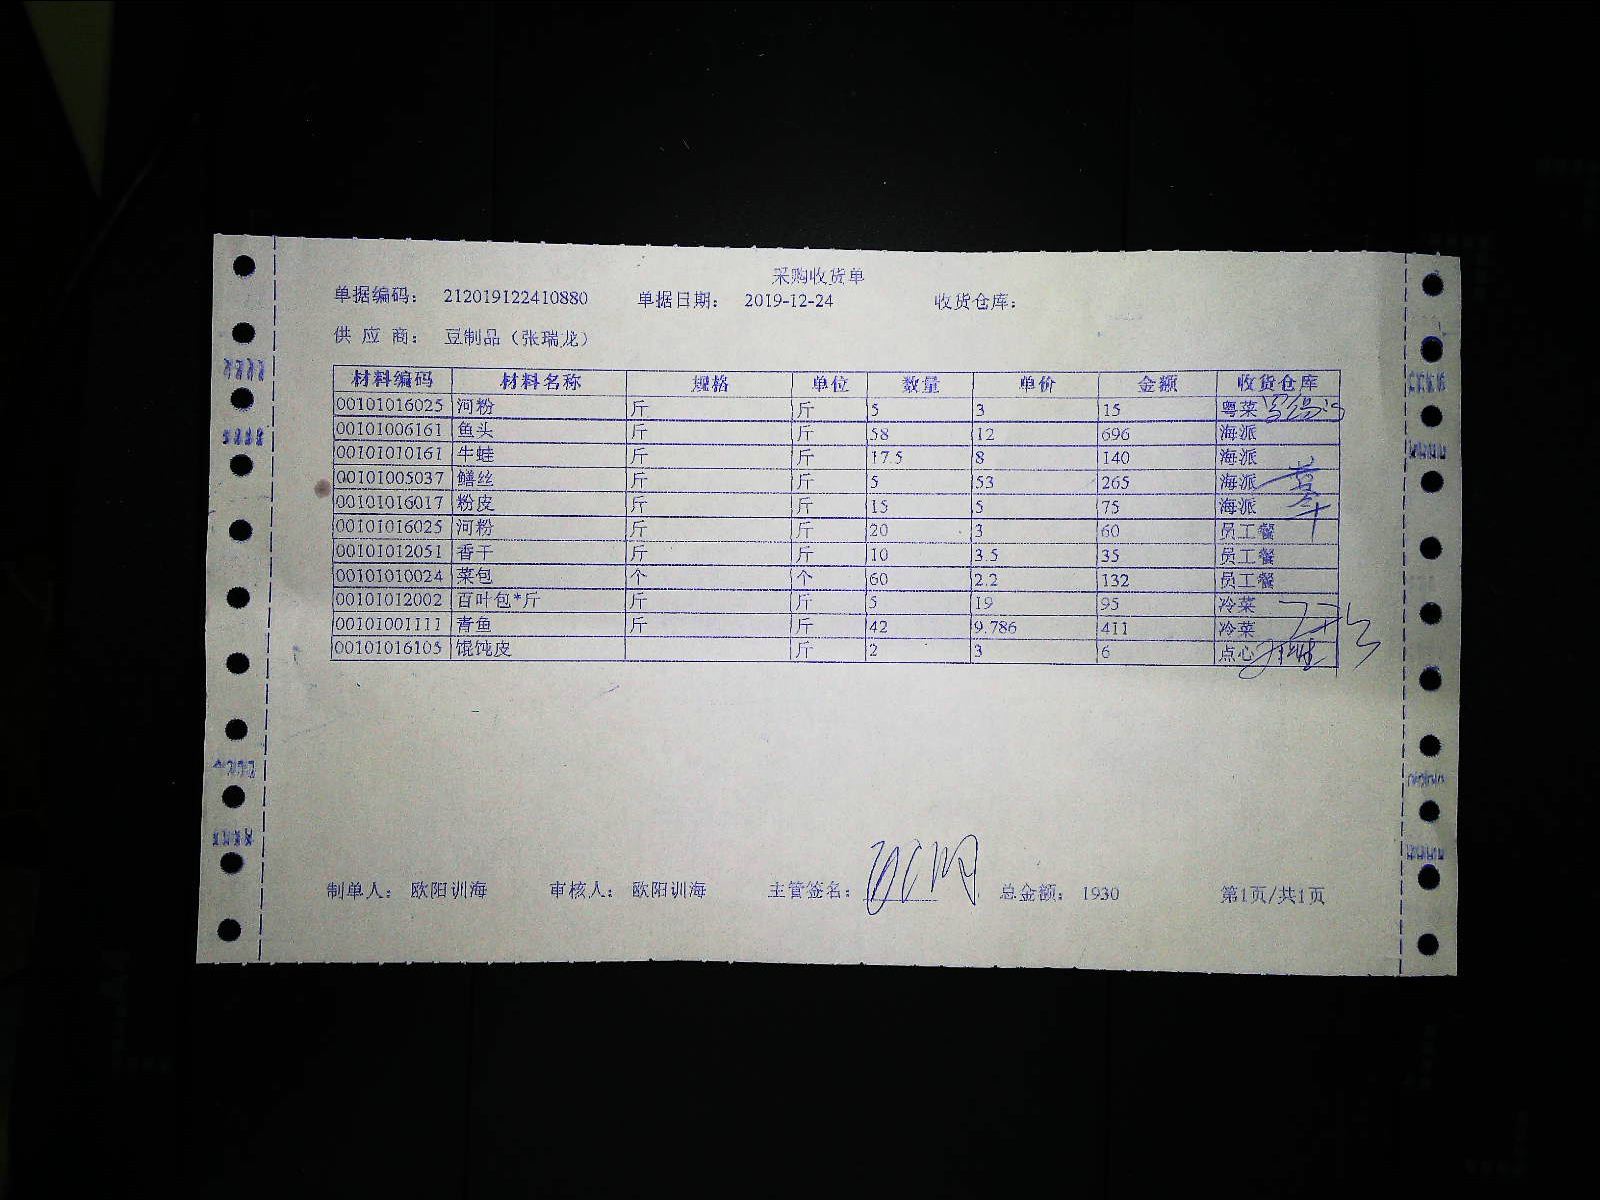 采购收货单
单据编码： 212019122410880 单据日期： 2019-12-24 收货仓库：
供 应 商： 豆制品（张瑞龙）
材料编码 材料名称 规格 单位 数量 单价 金额 收货仓库
00101016025 河粉 斤 斤 5 3 15 粤菜
00101006161 鱼头 斤 斤 58 12 696 海派
00101010161 牛蛙 斤 斤 17.5 8 140 海派
00101005037 鳝丝 斤 斤 5 53 265 海派
00101016017 粉皮 斤 斤 15 5 75 海派
00101016025 河粉 斤 斤 20 3 60 员工餐
00101012051 香干 斤 斤 10 3.5 35 员工餐
00101010024 菜包 个 个 60 2.2 132 员工餐
00101012002 百叶包*斤 斤 斤 5 19 95 冷菜
00101001111 青鱼 斤 斤 42 9.786 411 冷菜
00101016105 馄饨皮 斤 2 3 6 点心
制单人： 欧阳训海 审核人： 欧阳训海 主管签名： 总金额： 1930 第1页/共1页